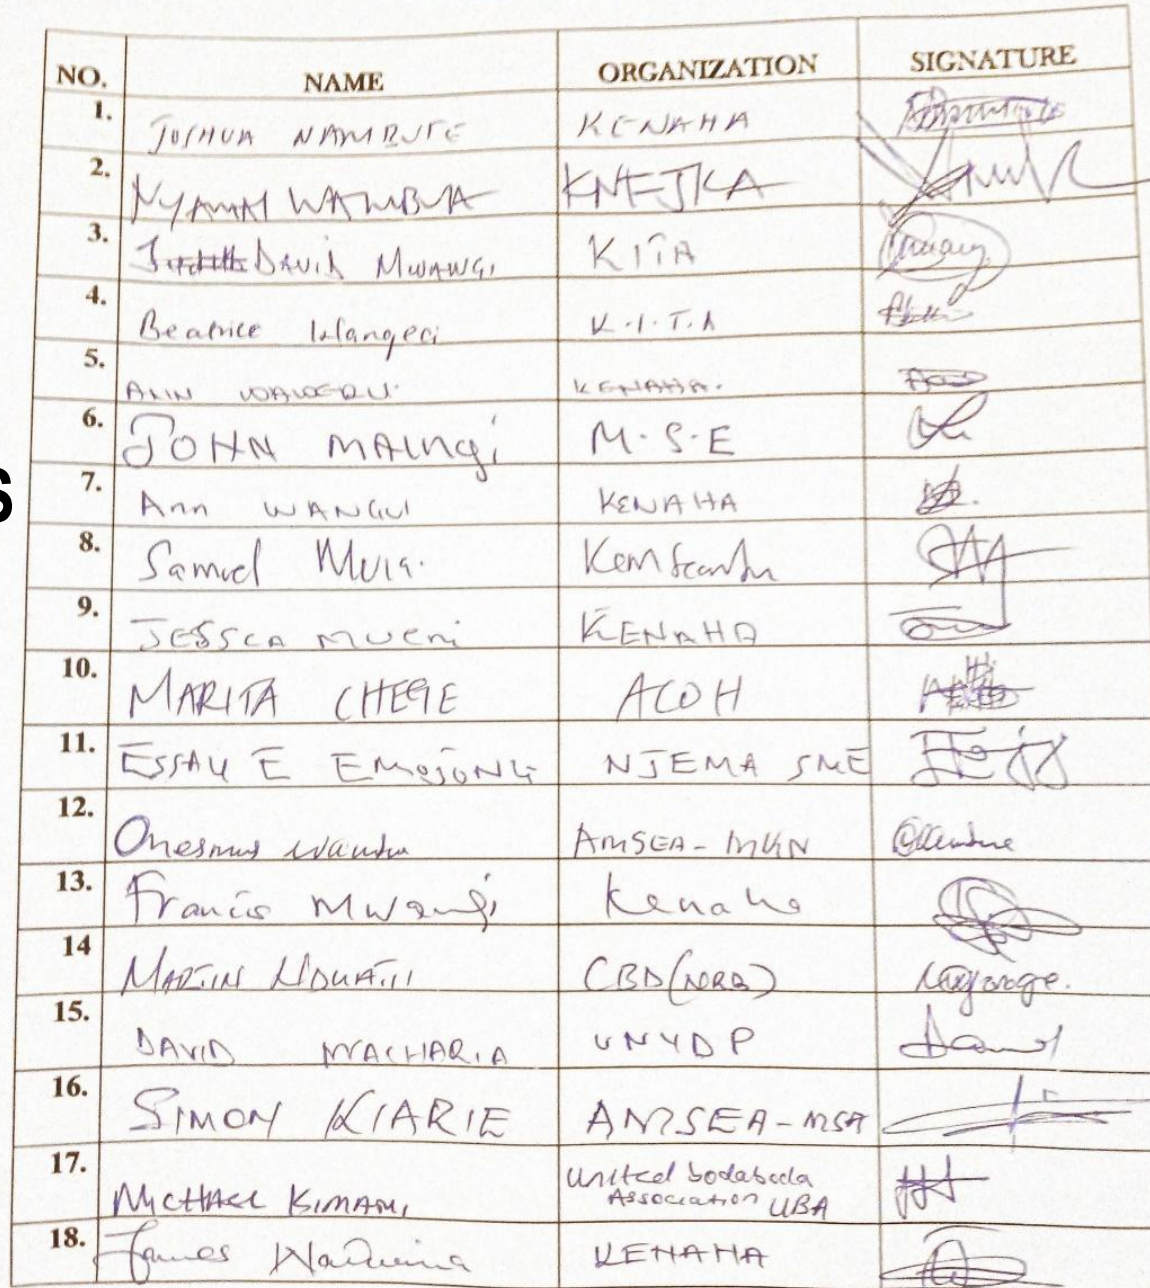 NO. NAME ORGANIZATION SIGNATURE
1. JOSHUA NAMBUTE KENAHA
2. NYAMAI WAMBUA KNFJKA
3. DAVID MWANGI KITA
4. Beatrice K.I.T.A
5. ANN WAWERU. KENAHA.
6. JOHN MAINGI M.S.E
7. Ann WANGUI KENAHA
8. Samuel
9. JESSCA MUENI KENAHA
10. MARITA CHEGE ACOH
11. ESSAU E EMOJONG NJEMA SME
12. Onesmus AMSEA-MKN
13. Francis Mwangi Kenaha
14 MARTIN NDUATII CBD (NRB)
15. DAVID MACHARIA UNYDP
16. SIMON KIARIE AMSEA-MSA
17. MICHAEL KIMANI United bodaboda Association UBA
18. James KENAHA
S